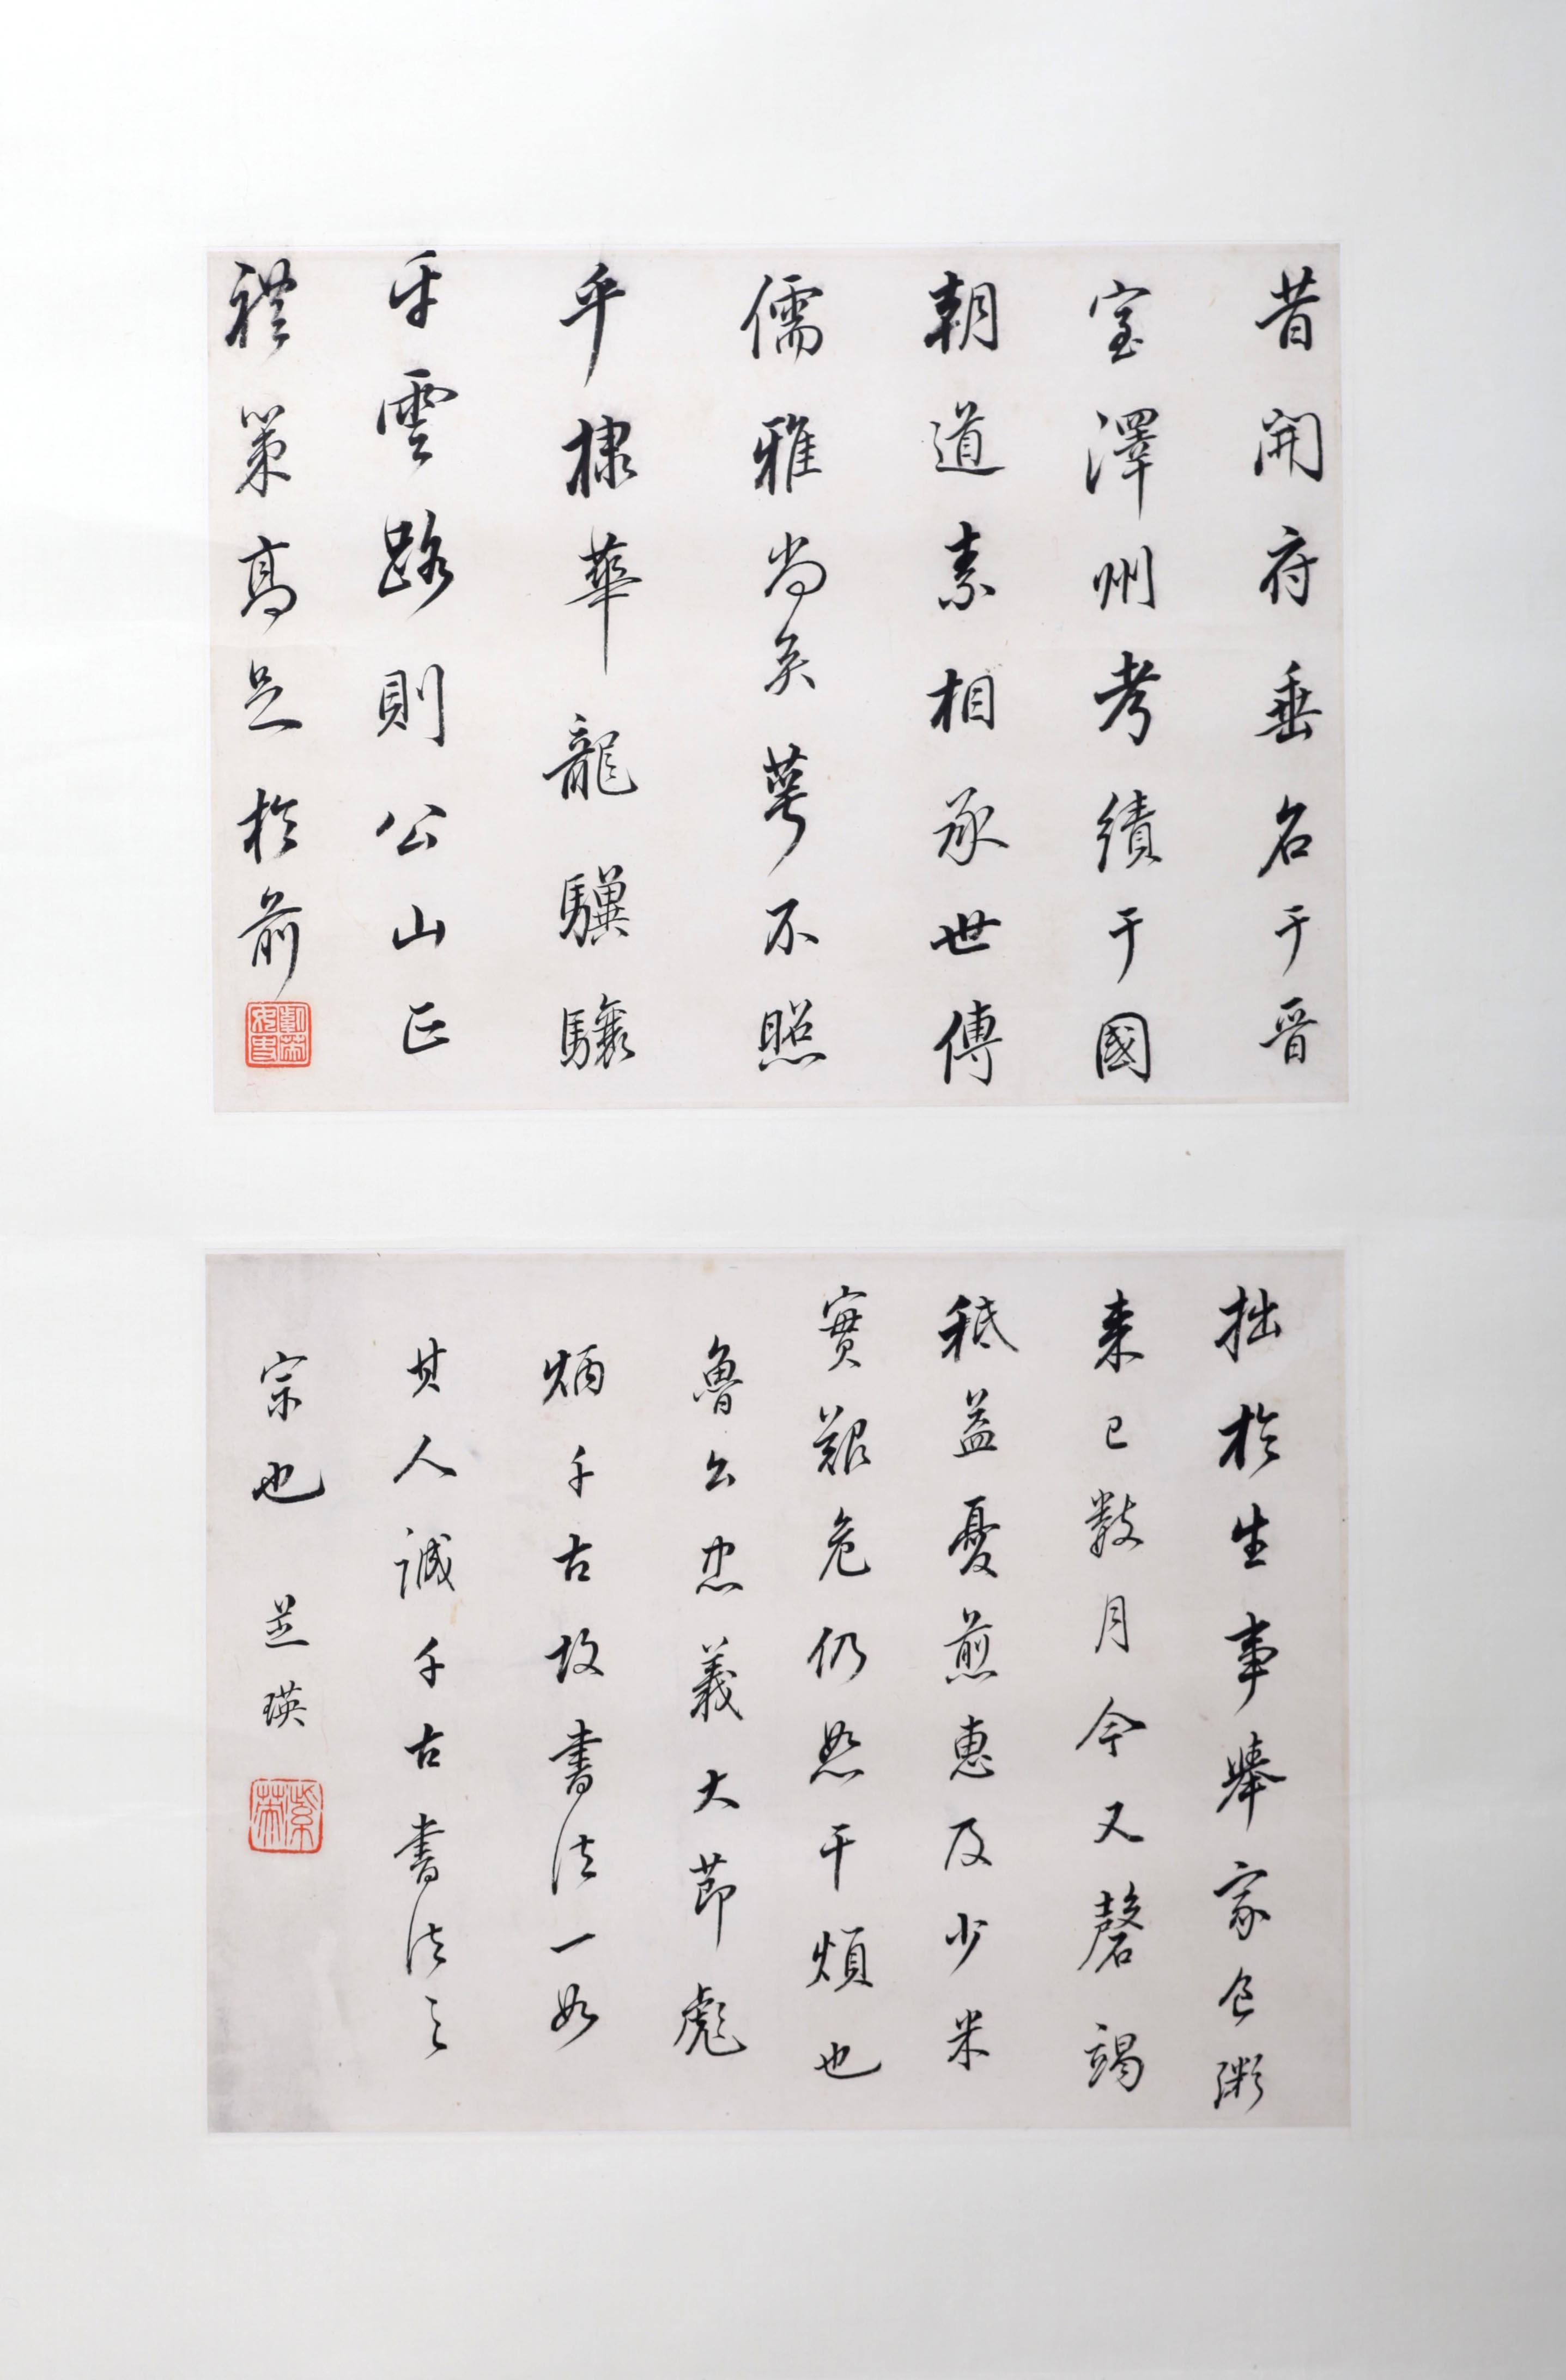 昔開府垂名于晉
室澤州考績于國
朝道素相承世傳
儒雅尚矣萼不照
乎棣華龍驥驤
乎雲路則公山正
禮策高足於前
拙於生事舉家食粥
來已數月今又罄竭
秪益憂煎惠及少米
實艱危仍恕干煩也
魯公忠義大節彪
炳千古故書法一如
其人誠千古書法之
宗也 芝瑛
紫英